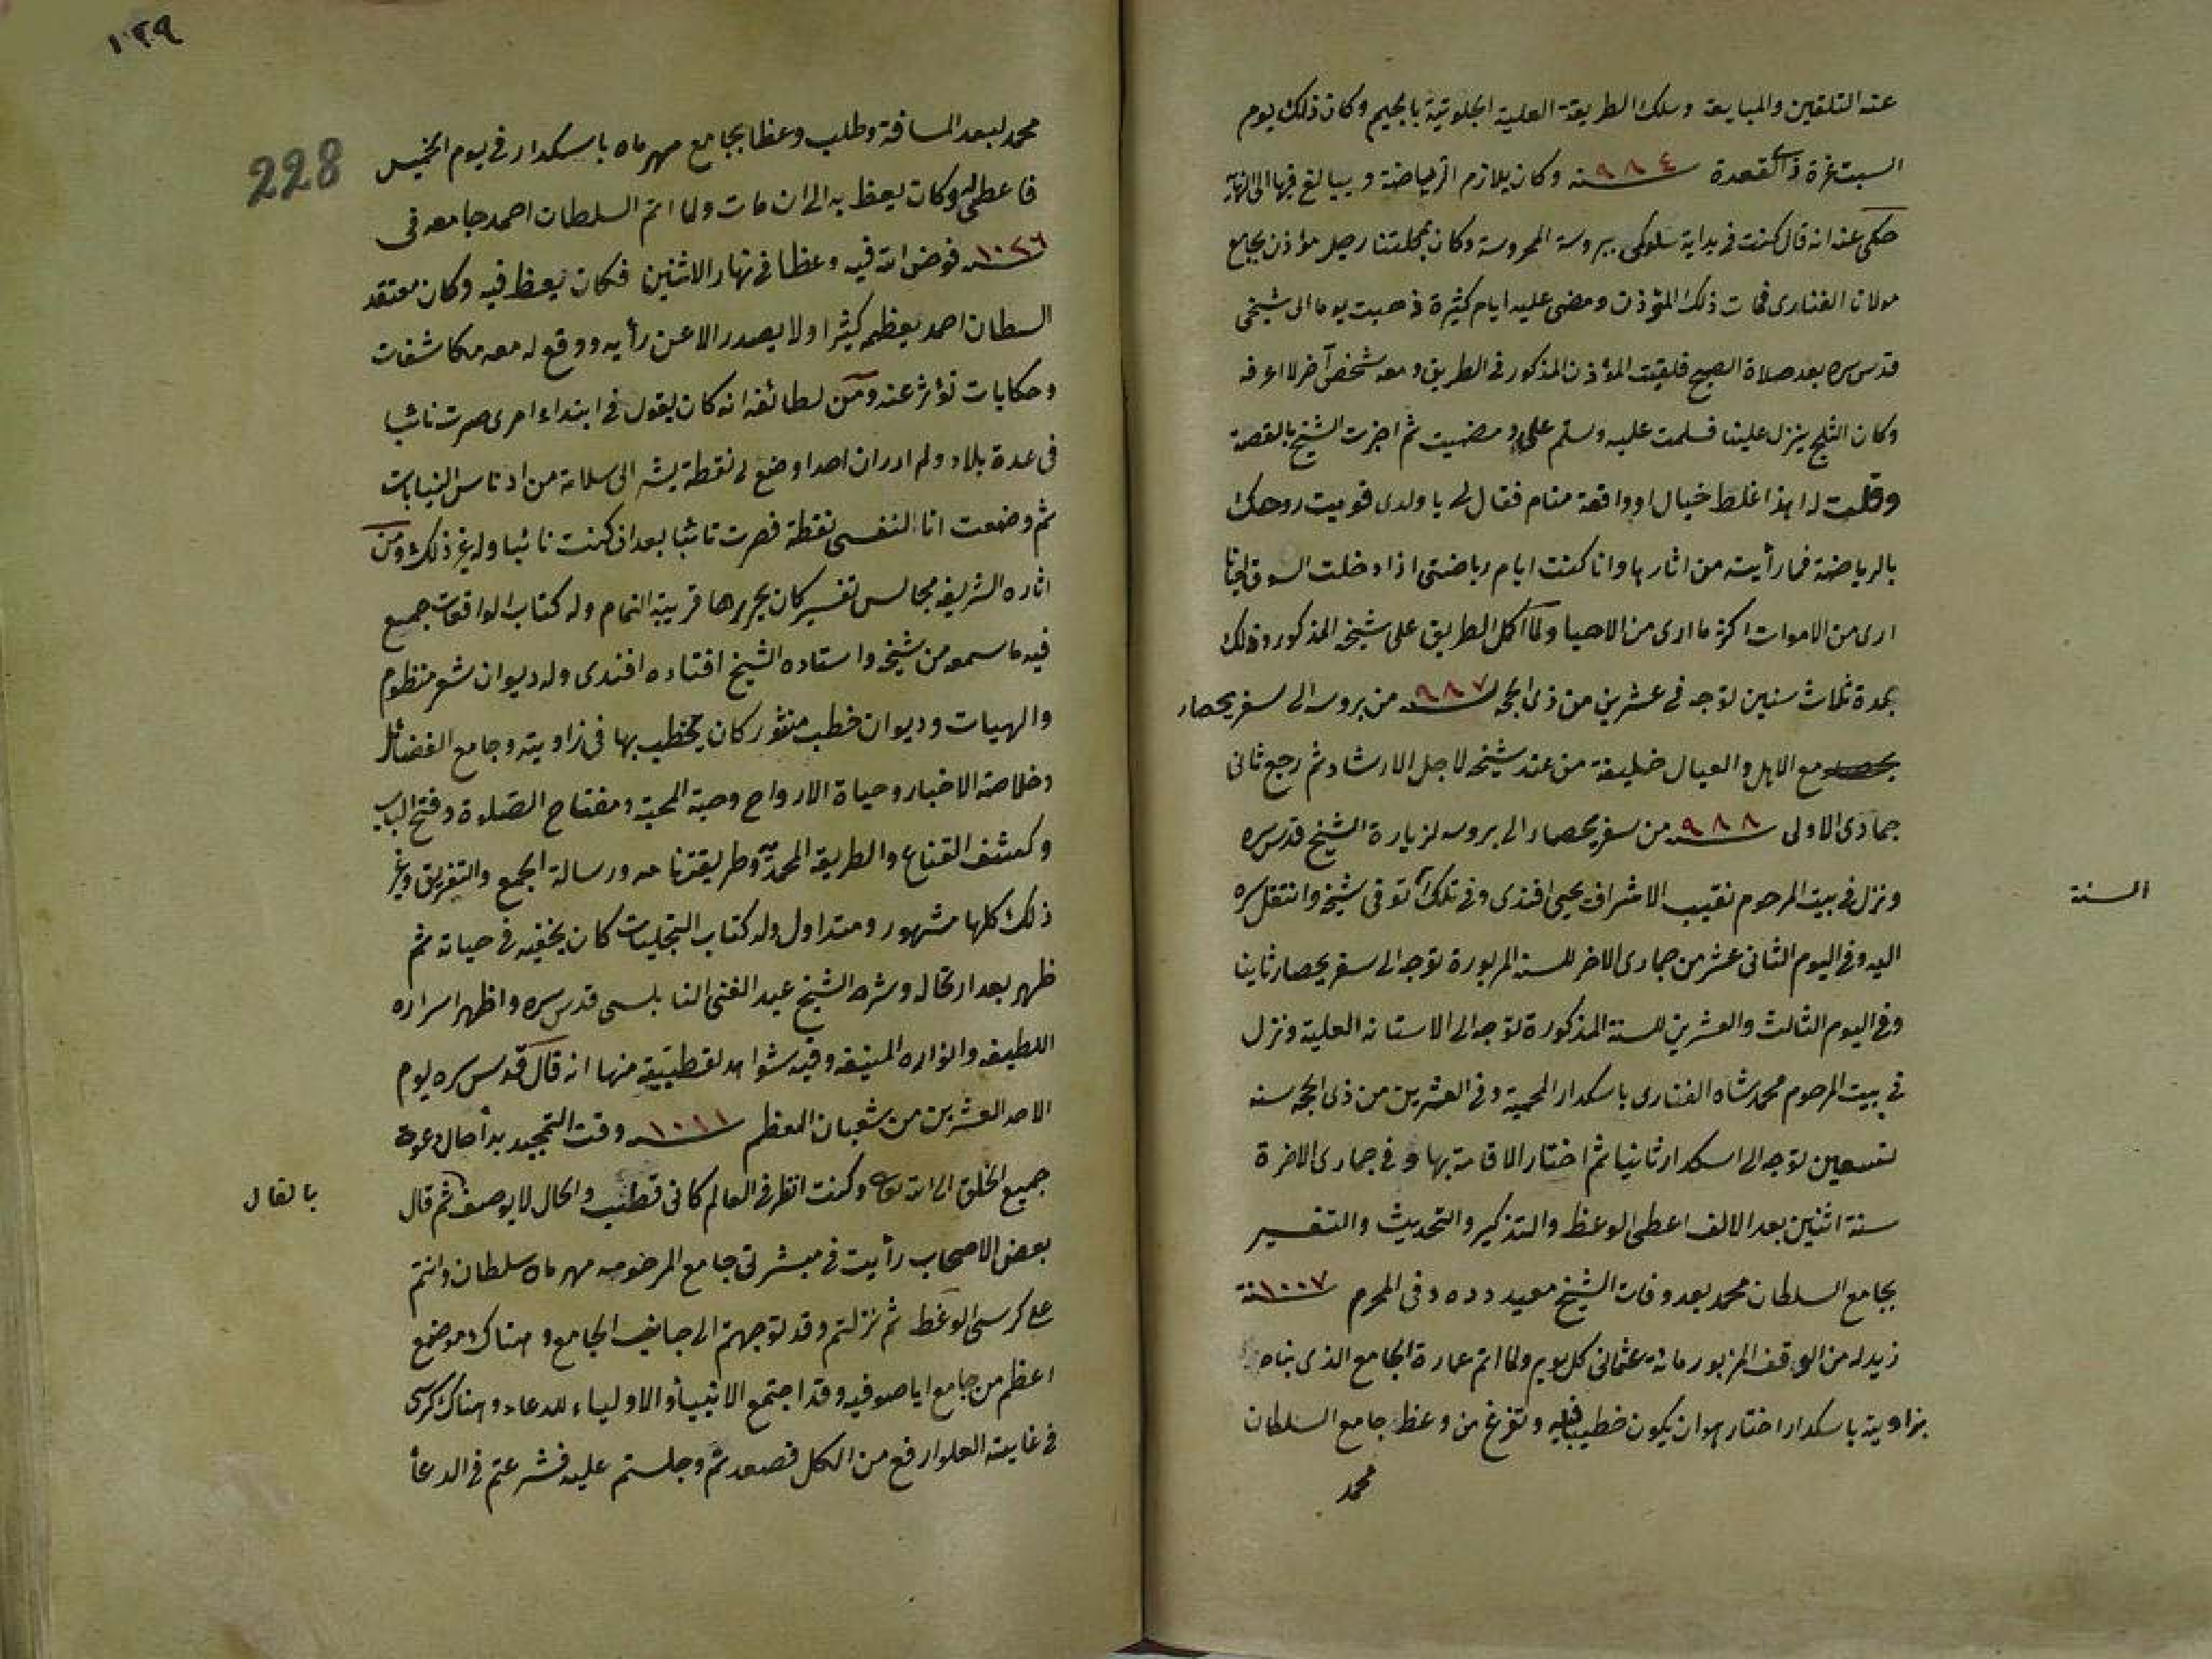 عنه التلقين والمبايعة وسلك الطريقة العلية الجلوتية بالجيم وكان ذلك يوم
السبت غرة ذى القعدة سنة ٩٨٤ وكان يلازم الرياضة ويبالغ فيها الى النهاية
حكى عنه انه قال كنت فى بداية سلوكى ببروسة المحروسة وكان بمحلتنا رجل مؤذن بجامع
مولانا الفنارى فمات ذلك المؤذن ومضى عليه ايام كثيرة فذهبت يوما الى شيخى
قدس سره بعد صلاة الصبح فلقيت المؤذن المذكور فى الطريق ومعه شخص آخر لا اعرفه
وكان الثلج ينزل علينا فسلمت عليه وسلم على ومضيت ثم اخبرت الشيخ بالقصة
وقلت له اهذا غلط خيال او واقعة منام فقال لى يا ولدى قويت روحك
بالرياضة فما رأيته من اثارها وانا كنت ايام رياضتى اذا دخلت السوق احيانا
ارى من الاموات اكثر ما ارى من الاحيا ولما اكمل الطريق على شيخه المذكور وذلك
بمدة ثلاث سنين توجه فى عشرين من ذى الحجه سنه ٩٨٧ من بروسه الى سفريحصار
مع الاهل والعيال خليفة من عند شيخه لاجل الارشاد ثم رجع ثانى
جمادى الاولى سنه ٩٨٨ من سفريحصار الى بروسه لزيارة الشيخ قدس سره
ونزل فى بيت المرحوم نقيب الاشراف يحيى افندى وفى تلك توفى شيخه وانتقل سره
السنة
اليه وفى اليوم الثانى عشر من جمادى الاخر للسنه المزبورة توجه الى سفريحصار ثانيا
وفى اليوم الثالث والعشرين للسنة المذكورة توجه الى الاستانه العلية ونزل
فى بيت المرحوم محمد شاه الفنارى باسكدار المحمية وفى العشرين من ذى الحجه سنه
تسعين توجه الى اسكدار ثانيا ثم اختار الاقامة بها وفى جمادى الاخرة
سنة اثنين بعد الالف اعطى الوعظ والتذكير والتحديث والتفسير
بجامع السلطان محمد بعد وفات الشيخ معيد دده وفى المحرم سنة ١٠٠٧
زيد له من الوقف المزبور مائة عثمانى كل يوم ولما اتم عمارة الجامع الذى بناه
بزاويته باسكدار اختار هو ان يكون خطيبا فيه وتفرغ من وعظ جامع السلطان
محمد
١٢٩
228
محمد لبعد المسافة وطلب وعظا بجامع مهرماه باسكدار فى يوم الخميس
فاعطى وكان يعظ به الى ان مات ولما اتم السلطان احمد جامعه فى
سنه ١٠٢٦ فوض اليه فيه وعظا فى نهار الاثنين فكان يعظ فيه وكان معتقد
السطان احمد يعظمه كثيرا ولا يصدر الا عن رأيه ووقع له معه مكاشفات
وحكايات تؤثر عنه ومن لطائفه انه كان يقول فى ابتداء امرى صرت نائبا
فى عدة بلاد ولم ادر ان احدا وضع لى نقطة يشير الى سلامة من ادناس النيابات
ثم وضعت انا لنفسى نقطة فصرت تائبا بعد ان كنت نائبا وله غير ذلك ومن
اثاره الشريفه مجالس تفسير كان يحررها قريبة التمام وله كتاب الواقعات جميع
فيه ما سمعه من شيخه واستاده الشيخ افتاده افندى وله ديوان شعر منظوم
والهيات وديوان خطب منثور كان يخطب بها فى زاويته وجامع الفضائل
وخلاصة الاخبار وحياة الارواح وحبة المحبة ومفتاح الصلوة وفتح الباب
وكشف القناع والطريقه المحمدية وطريقتنا مه ورسالة الجمع والتفريق وغير
ذلك كلها مشهور ومتداول وله كتاب التجليات كان يخفيه فى حياته ثم
ظهر بعد ارتحاله وشرحه الشيخ عبد الغنى النابلسى قدس سره واظهر اسراره
اللطيفه وانواره المنيفه وفيه شواهد لقطبيته منها انه قال قدس سره يوم
الاحد العشرين من شعبان المعظم سنه ١٠١١ وقت التمجيد بدأ حال دعوة
جميع الخلق الى الله تعالى وكنت انظر فى العالم كانى قطب والحال لا يوصف ثم قال
بالقال
بعض الاصحاب رأيت فى مبشرتى جامع المرحومه مهرماه سلطان وانتم
على كرسى الوعظ ثم نزلتم وقد توجهتم الى جانب الجامع وهناك موضع
اعظم من جامع اياصوفيه وقد اجتمع الانبيأ والاولياء للدعاء وهناك كرسى
فى غاية العلو ارفع من الكل فصعدتم وجلستم عليه فشرعتم فى الدعأ